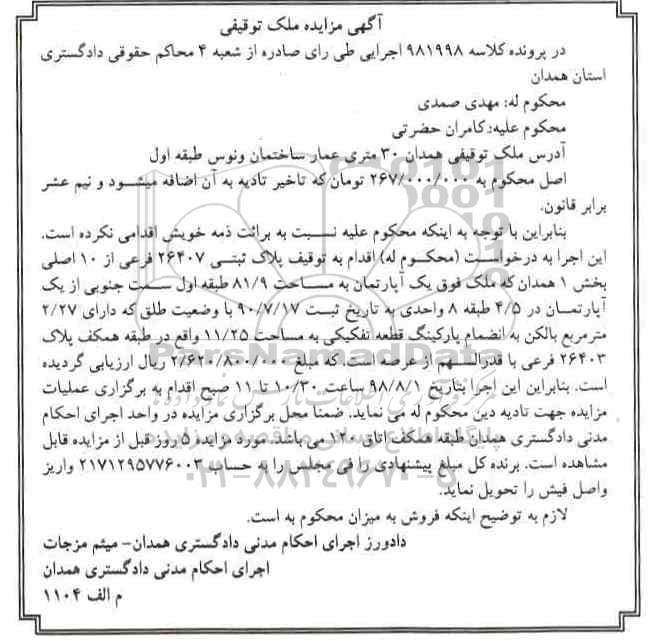 آگهی مزایده ملک توقیفی
در پرونده کلاسه ۹۸۱۹۹۸ اجرایی طی رای صادره از شعبه ۴ محاکم حقوقی دادگستری
استان همدان
محکوم له: مهدی صمدی
محکوم علیه: کامران حضرتی
آدرس ملک توقیفی همدان ۳۰ متری عمار ساختمان ونوس طبقه اول
اصل محکوم به ۲۶۷/۰۰۰/۰۰۰ تومان که تاخیر تادیه به آن اضافه میشود و نیم عشر
برابر قانون.
بنابراین با توجه به اینکه محکوم علیه نسبت به برائت ذمه خویش اقدامی نکرده است.
این اجرا به درخواست (محکوم له) اقدام به توقیف پلاک ثبتی ۲۶۴۰۷ فرعی از ۱۰ اصلی
بخش ۱ همدان که ملک فوق یک آپارتمان به مساحت ۸۱/۹ طبقه اول سمت جنوبی از یک
آپارتمان در ۴/۵ طبقه ۸ واحدی به تاریخ ثبت ۹۰/۷/۱۷ با وضعیت طلق که دارای ۲/۲۷
مترمربع بالکن به انضمام پارکینگ قطعه تفکیکی به مساحت ۱۱/۲۵ واقع در طبقه همکف پلاک
۲۶۴۰۳ فرعی با قدرالسهم از عرصه است. که مبلغ ۲/۶۲۰/۸۰۰/۰۰۰ ریال ارزیابی گردیده
است. بنابراین این اجرا بتاریخ ۹۸/۸/۱ ساعت ۱۰/۳۰ تا ۱۱ صبح اقدام به برگزاری عملیات
مزایده جهت تادیه دین محکوم له می نماید. ضمنا محل برگزاری مزایده در واحد اجرای احکام
مدنی دادگستری همدان طبقه همکف اتاق ۱۲۰ می باشد. مورد مزایده ۵ روز قبل از مزایده قابل
مشاهده است. برنده کل مبلغ پیشنهادی را فی مجلس را به حساب ۲۱۷۱۲۹۵۷۷۶۰۰۳ واریز
واصل فیش را تحویل نماید.
لازم به توضیح اینکه فروش به میزان محکوم به است.
دادورز اجرای احکام مدنی دادگستری همدان- میثم مزجات
اجرای احکام مدنی دادگستری همدان
م الف ۱۱۰۴
ParsNamadData
۰۲۱-۸۸۳۴۹۶۷۰-۵